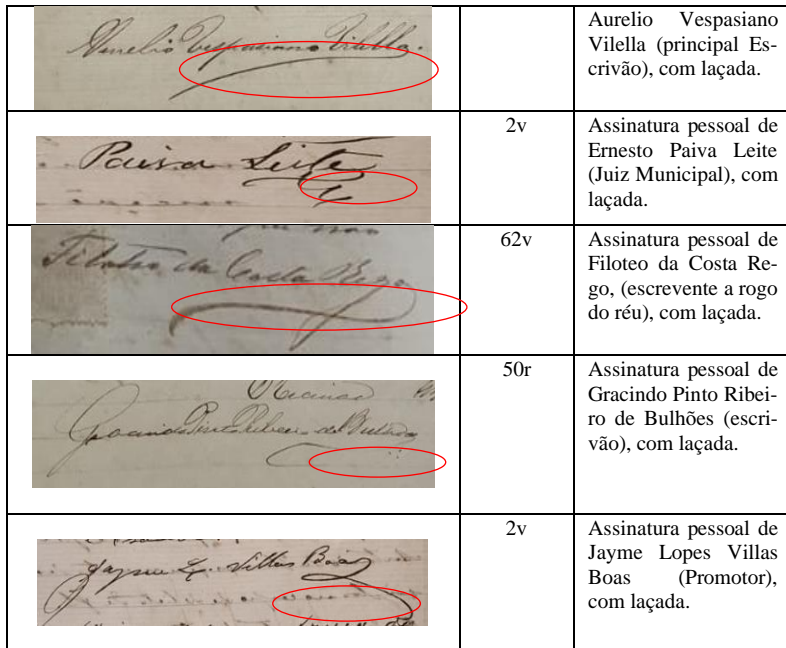 Aurelio Vespasiano Vilella.
Aurelio Vespasiano
Vilella (principal Es-
crivão), com laçada.
Paiva Leite
2v
Assinatura pessoal de
Ernesto Paiva Leite
(Juiz Municipal), com
laçada.
Filoteo da Costa Rego
62v
Assinatura pessoal de
Filoteo da Costa Re-
go, (escrevente a rogo
do réu), com laçada.
Gracindo Pinto Ribeiro de Bulhões
50r
Assinatura pessoal de
Gracindo Pinto Ribei-
ro de Bulhões (escri-
vão), com laçada.
Jayme L. Villas Boas
2v
Assinatura pessoal de
Jayme Lopes Villas
Boas (Promotor),
com laçada.